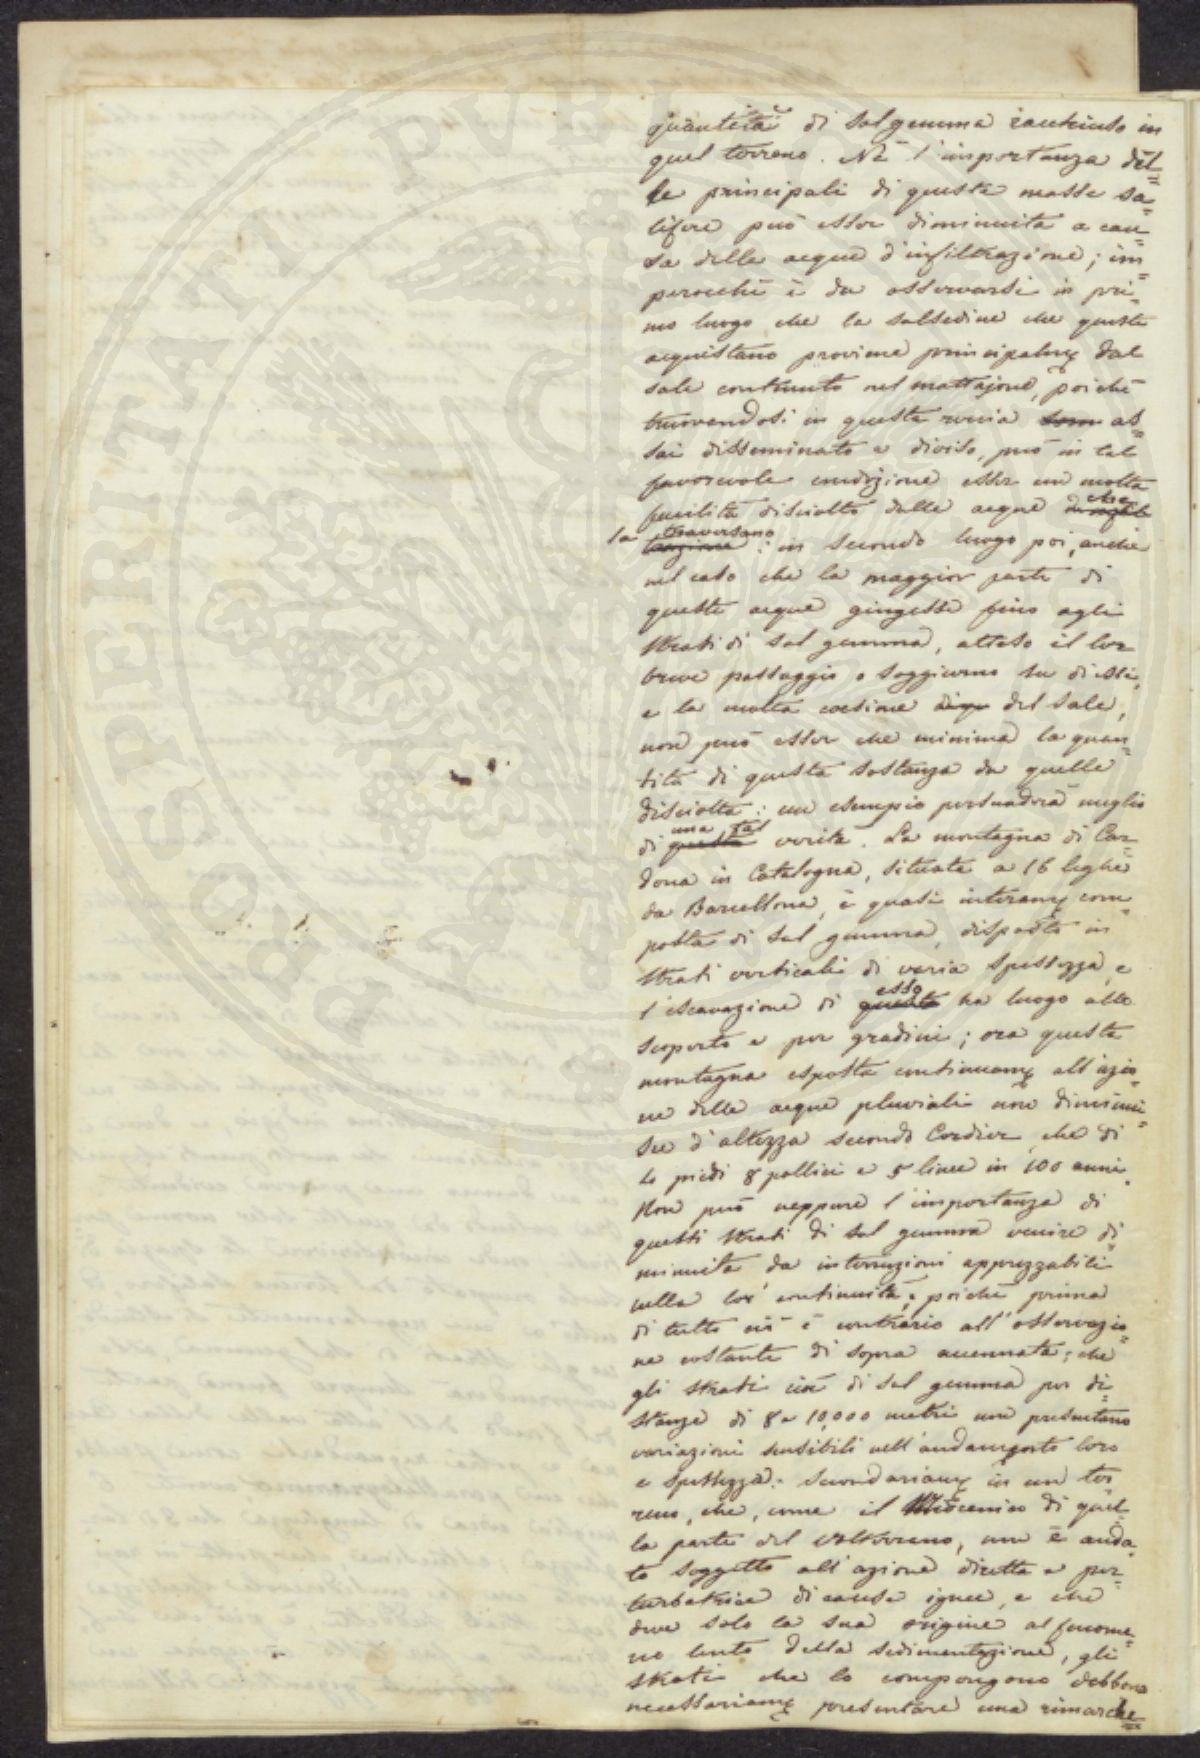 quantità di sal gemma racchiuso in
quel terreno. Nè l'importanza del=
le principali di queste masse sa=
lifere può esser diminuita a cau=
sa delle acque d'infiltrazione; im=
perocchè è da osservarsi in pri=
mo luogo che la salsedine che queste
acquistano proviene principalm̃e dal
sale contenuto nel mattajone, poichè
truovandosi in questa roccia as=
sai disseminato e diviso, può in tal
favorevole condizione esser con molta
facilità disciolto dalle acque che
la traversano: in secondo luogo poi, anche
nel caso che la maggior parte di
queste acque giungesse fino agli
strati di sal gemma, atteso il lor
breve passaggio o soggiorno su di essi,
e la molta coesione del sale,
non può esser che minima la quan=
tità di questa sostanza da quelle
disciolta: un esempio persuaderà meglio
di una tal verità. La montagna di Car=
dona in Catalogna, situata a 16 leghe
da Barcellona, è quasi interam̃e com=
posta di sal gemma, disposto in
strati verticali di varia spessezza, e
l'escavazione di esso ha luogo allo
scoperto e per gradini; ora questa
montagna esposta continuam̃e all'azio=
ne delle acque pluviali non diminui=
sce d'altezza secondo Cordier, che di
4 piedi 8 pollici e 5 linee in 100 anni.
Non può neppure l'importanza di
questi strati di sal gemma venire di=
minuita da interruzioni apprezzabili
nella lor continuità; poichè prima
di tutto ciò è contrario all'osservazio=
ne costante di sopra accennata; che
gli strati cioè di sal gemma per di=
stanze di 8 a 10,000 metri non presentano
variazioni sensibili nell'andamento loro
e spessezza: secondariam̃e in un ter=
reno, che, come il Miocenico di quel=
la parte del Volterrano, non è anda=
to soggetto all'azione diretta e per=
turbatrice di cause ignee, e che
deve solo la sua origine al fenome=
no lento della sedimentazione, gli
strati che lo compongono debbono
necessariam̃e presentare una rimarche=
PROSPERITATI PUBLICAE